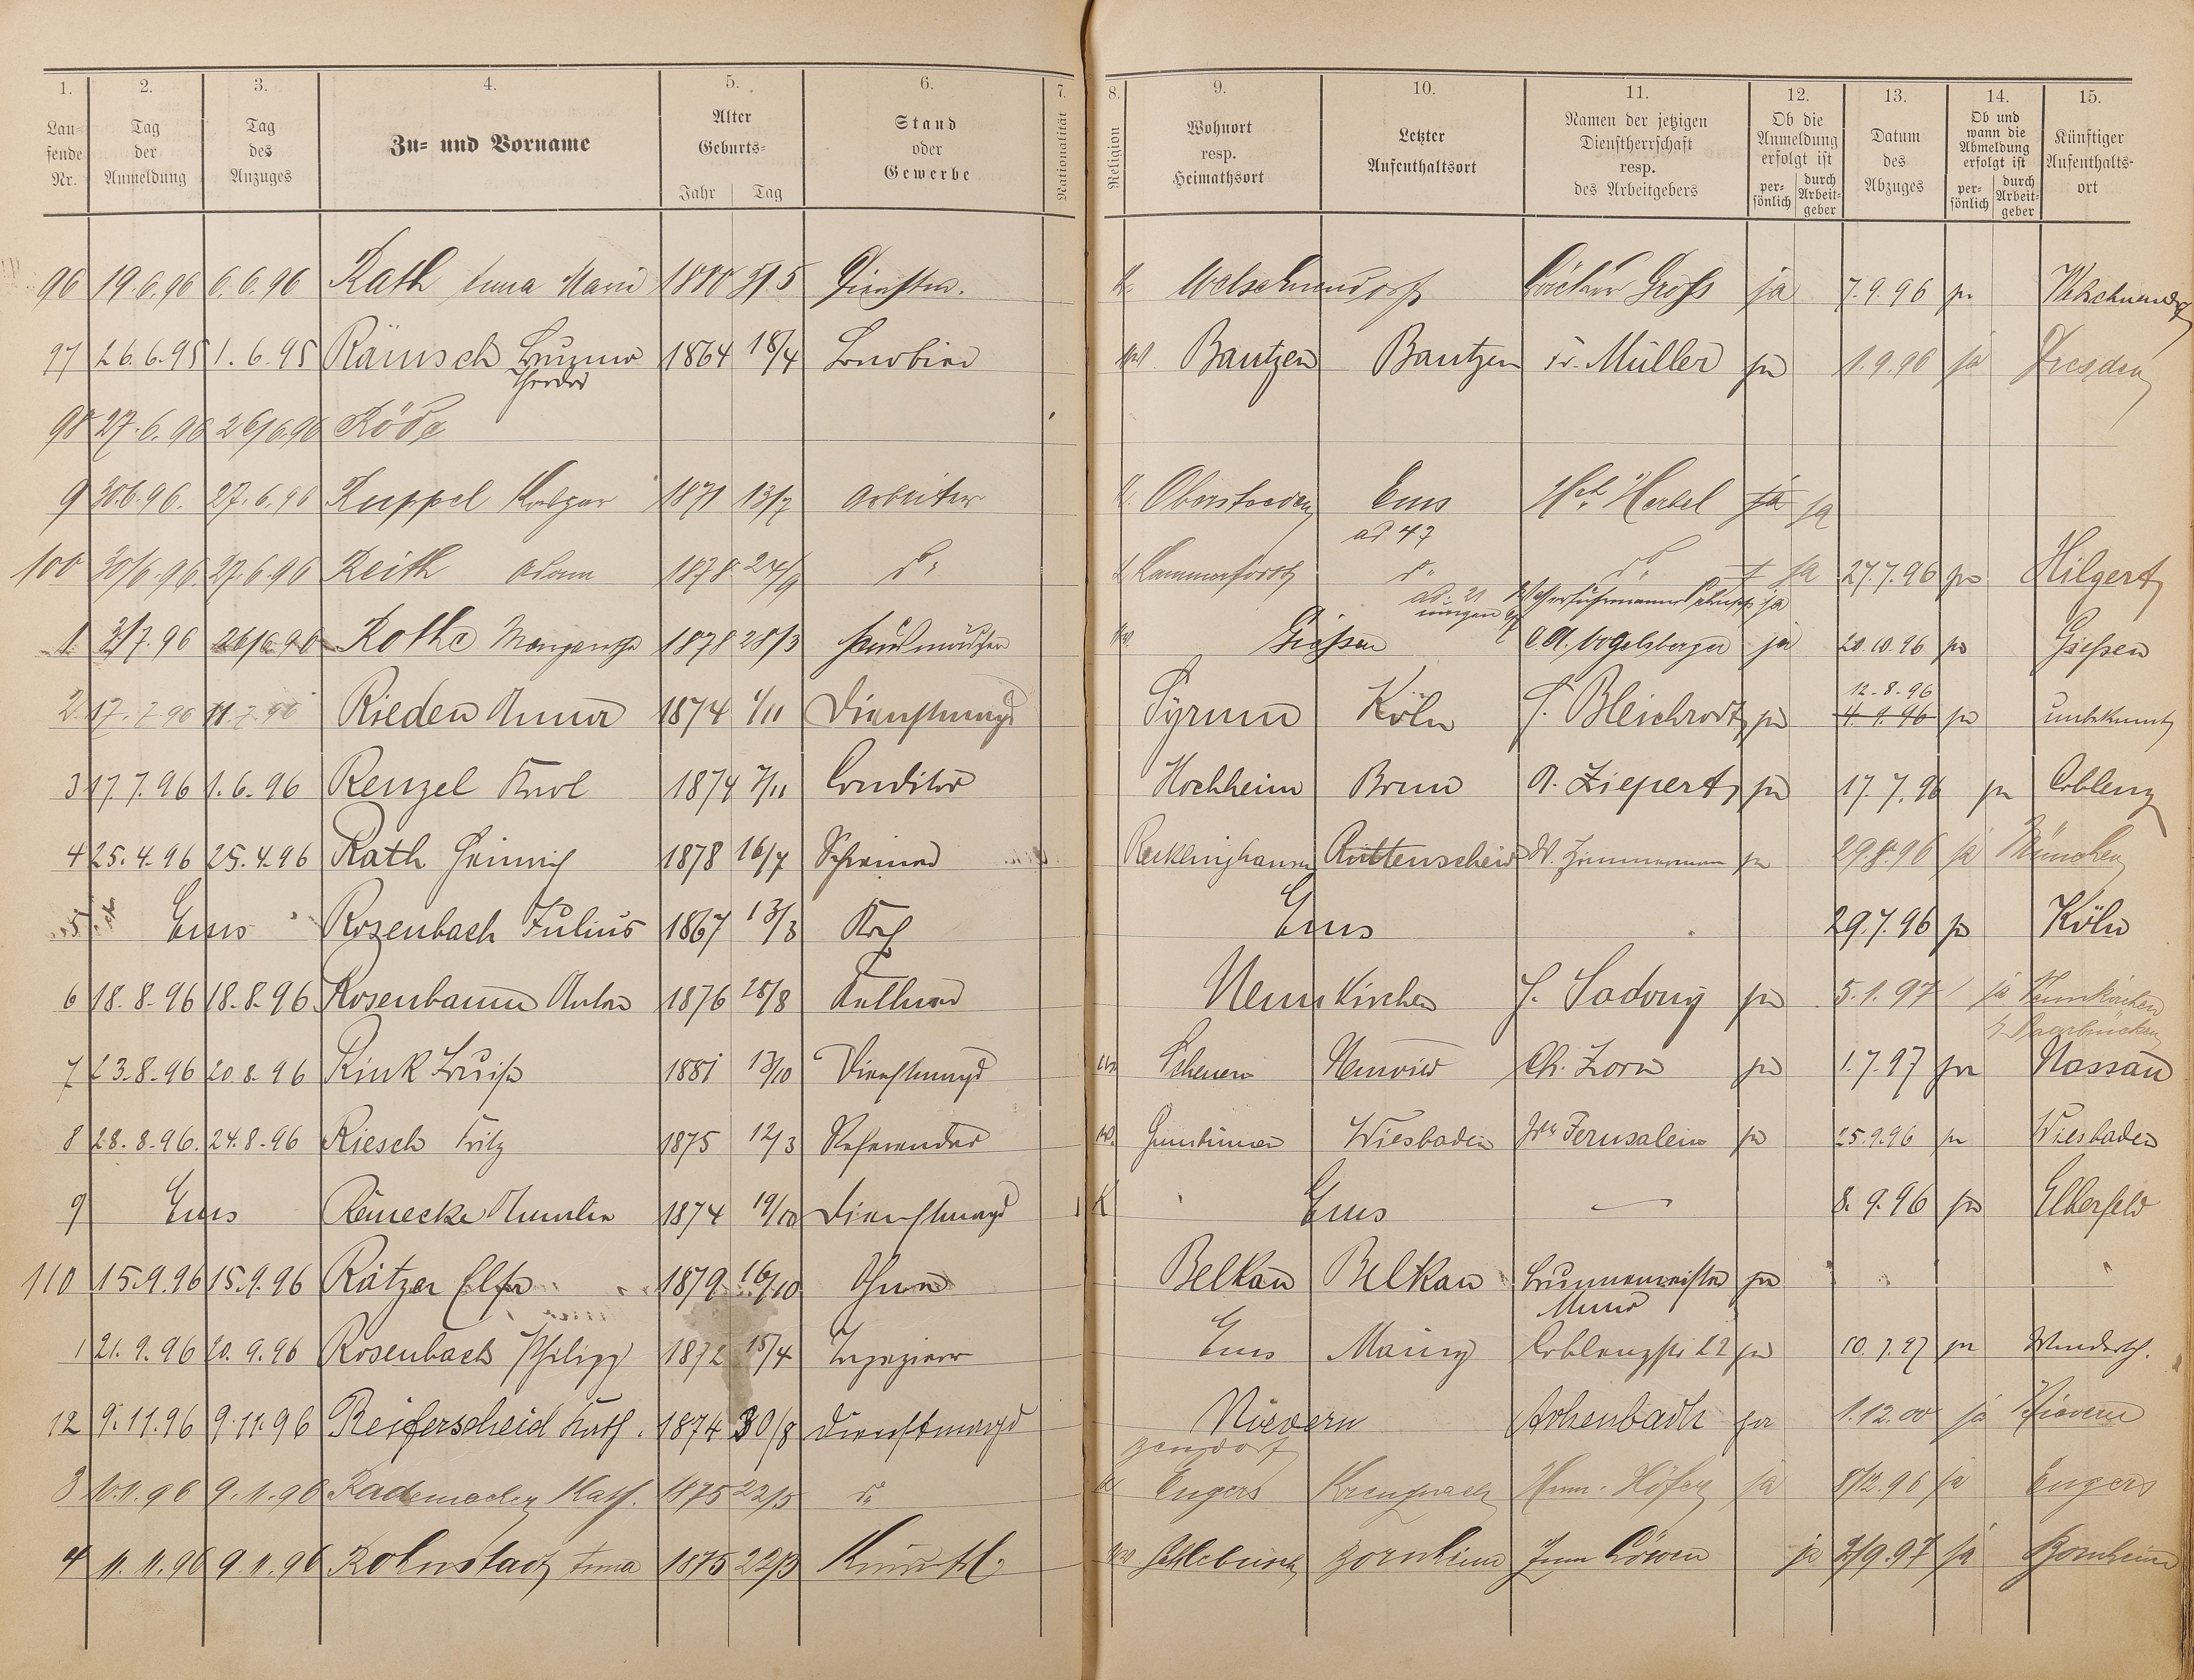 1. 2. 3. 4. 5. 6. 7. 8. 9. 10. 11. 12. 13. 14. 15.
Laufende Nr. Tag der Anmeldung Tag des Anzuges Zu- und Vorname Alter Geburts- Jahr Tag Stand oder Gewerbe Nationalität Religion Wohnort resp. Heimathsort Letzter Aufenthaltsort Namen der jetzigen Dienstherrschaft resp. des Arbeitgebers Ob die Anmeldung erfolgt ist persönlich durch Arbeitgeber Datum des Abzuges Ob und wann die Abmeldung erfolgt ist persönlich durch Arbeitgeber Künftiger Aufenthaltsort
96 19.6.96 6.6.96 Rath Anna Maria 1880 31/5 Dienstm. Welschneudorf Bäcker Groß ja 7.9.96 ja Welschneudf
97 26.6.95 1.6.95 Räntsch 1864 18/4 Bautzen Bautzen Fr. Müller ja 1.9.96 ja Dresden
Theodor
98 27.6.96 26/6.96 Röde
9 30.6.96. 27.6.96 Ruppel Kaspar 1871 13/7 Arbeiter Ems Hch. Herbel ja ja
ad 47
100 30/6.96 27.6.96 Reith Adam 1878 24/9 do Kammerforst do do ja 27.7.96 ja Hilgert
1 3/7.96 26/6.96 Rothe Margarethe 1878 28/3 Hausmädchen Gießen C.A. Vogelsberger ja 20.10.96 ja Gießen
12.8.96
2 17.7.96 11.7.96 Rieden Anna 1874 1/11 Dienstmagd Köln S. Bleichrodt ja 4.9.96 ja unbekannt
3 17.7.96 1.6.96 Renzel Karl 1874 7/11 Conditor Hochheim Bonn A. Ziepert ja 17.7.96 ja Coblenz
4 25.4.96 25.4.96 Rath Heinrich 1878 16/7 Schreiner Recklinghausen Rüttenscheid W. Zimmermann ja 29.8.96 ja München
5 Ems Rosenbach Julius 1867 13/3 Koch Ems 29.7.96 ja Köln
6 18.8.96 18.8.96 Rosenbaum Anton 1876 25/8 Kellner Neunkirchen J. Sadony ja 5.1.97 ja Neunkirchen
b. Saarbrücken
7 23.8.96 20.8.96 Rink Luise 1881 13/10 Dienstmagd Scheuern Neuwied Ch. Zorn ja 1.7.97 ja Nassau
8 28.8.96. 24.8.96 Riesch Fritz 1875 12/3 Referendar Wiesbaden Jerusalem ja 25.9.96 ja Wiesbaden
9 Ems Reinecke Amalia 1874 19/10 Dienstmagd K Ems 8.9.96 ja Elberfeld
110 15.9.96 15.9.96 Rätzer Elsa 1879 16/10 Ohne Belkau Belkau Brunnenmeister ja
1 21.9.96 20.9.96 Rosenbach Philipp 1872 15/4 Tapezierer Ems Mainz Coblenzstr. 22 ja 10.7.97 ja
12 9.11.96 9.11.96 Reiferscheid Kath. 1874 30/8 Dienstmagd Nievern Achenbach ja 1.12.00 ja Nievern
3 10.1.96 9.1.96 Rademacher Kath. 1875 22/5 do Engers Kreuznach Herm. Höfer ja 8/12.96 ja Engers
4 11.11.96 9.11.96 Rohnstadt Anna 1875 22/3 Schlebusch Zum Löwen ja 3/9.97 ja Bornheim